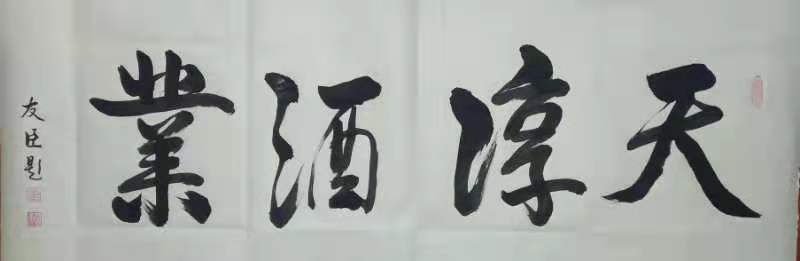 天淳酒業
友臣題